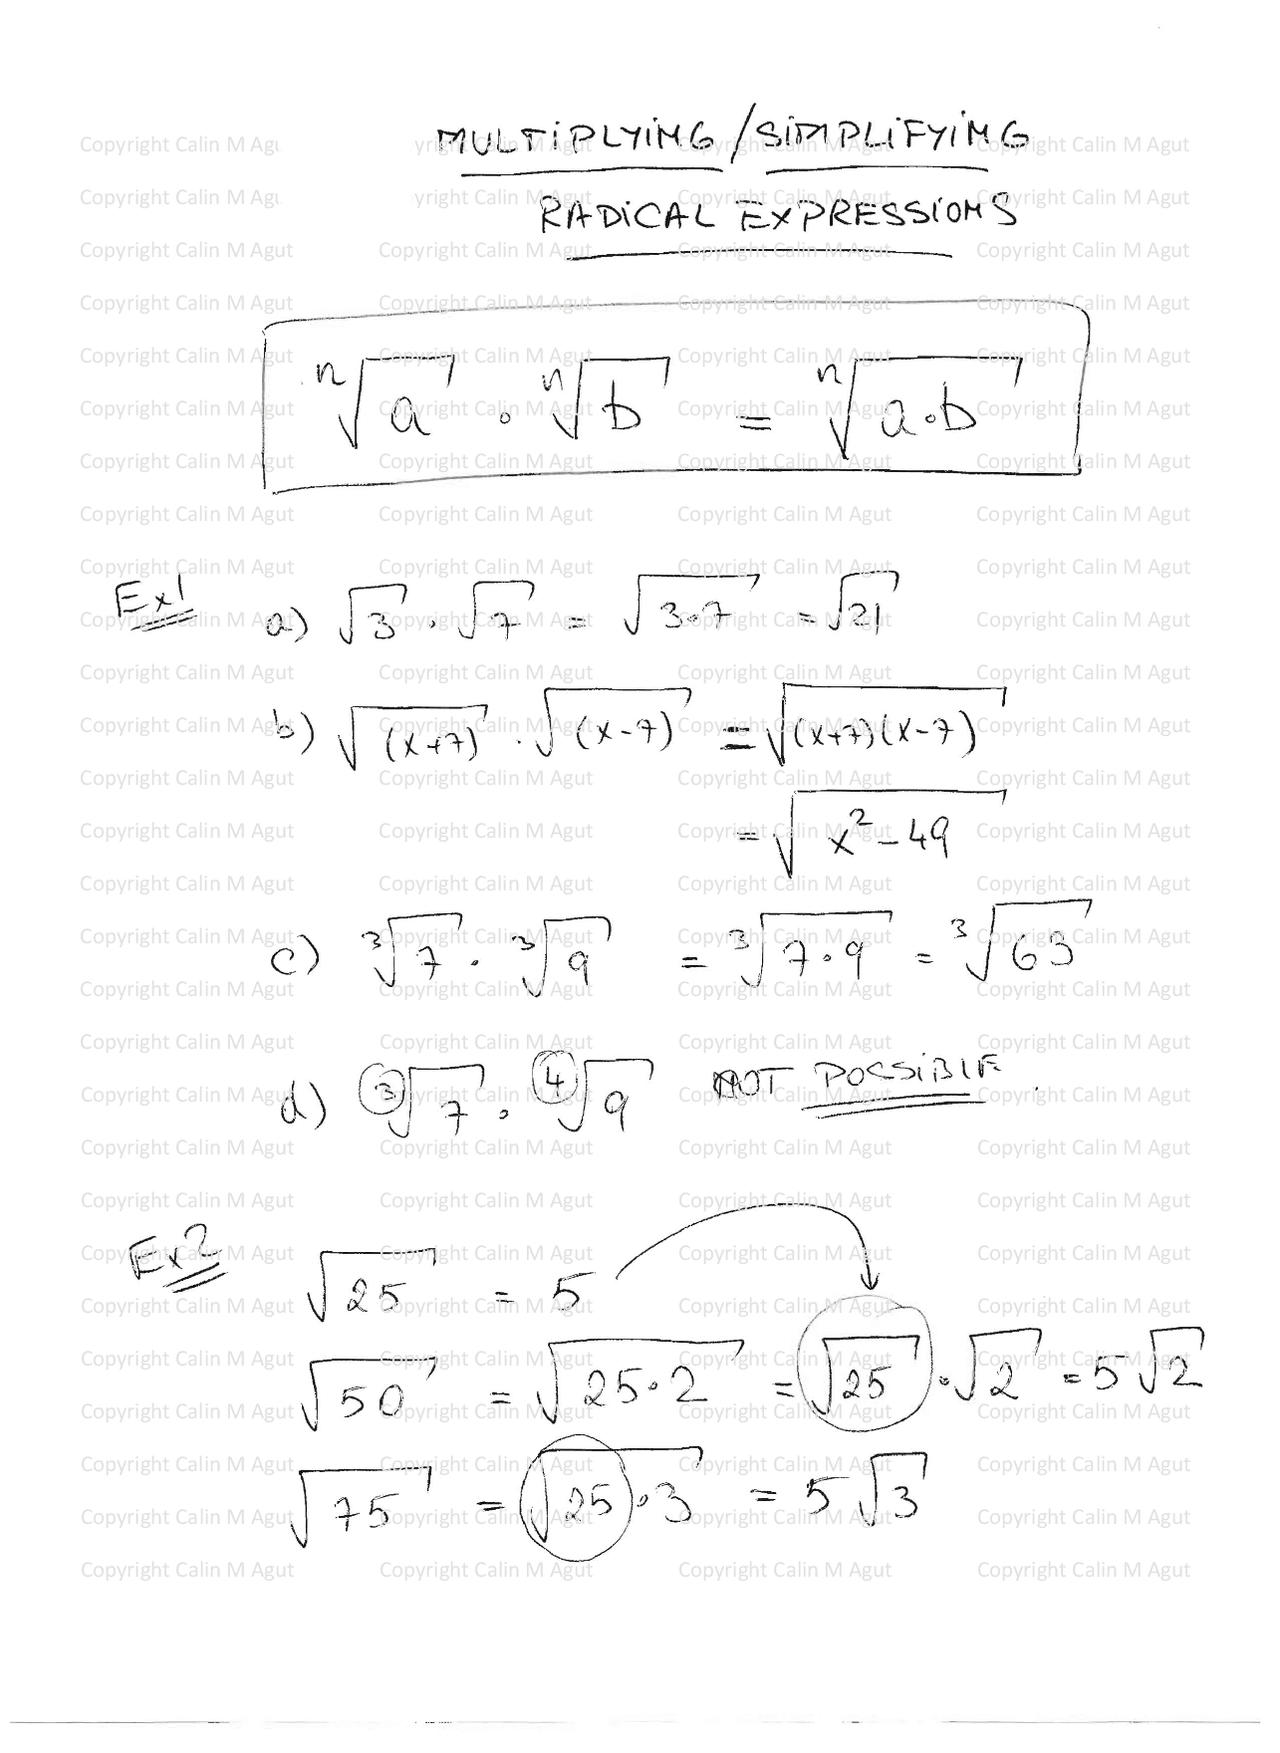 MULTIPLYING/SIMPLIFYING
RADICAL EXPRESSIONS
ⁿ√a · ⁿ√b = ⁿ√a·b
Ex1 a) √3 · √7 = √3·7 = √21
b) √(x+7) · √(x-7) = √(x+7)(x-7)
= √x²-49
c) ³√7 · ³√9 = ³√7·9 = ³√63
d) ³√7 · ⁴√9 NOT POSSIBLE.
Ex2 √25 = 5
√50 = √25·2 = √25 · √2 = 5√2
√75 = √25·3 = 5√3
Copyright Calin M Agut